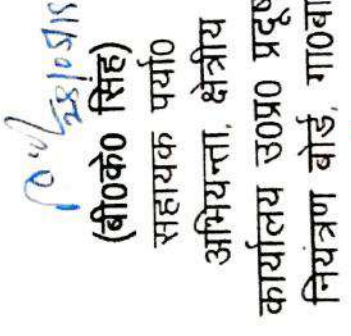 28/05/15
(बी0के0 सिंह)
सहायक पर्या0
अभियन्ता, क्षेत्रीय
कार्यालय उ0प्र0
नियंत्रण बोर्ड, गा0बा